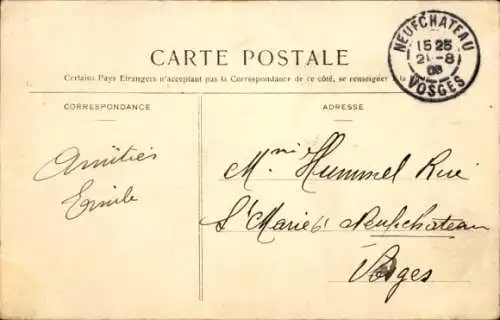 CARTE POSTALE
Certains Pays Etrangers n'acceptant pas la Correspondance de ce côté, se renseigner à la
NEUFCHATEAU
15 25
21-8
08
VOSGES
CORRESPONDANCE
ADRESSE
Amitiés
Emile
Hummel Rue
Ste Marie à Neufchateau
Vosges